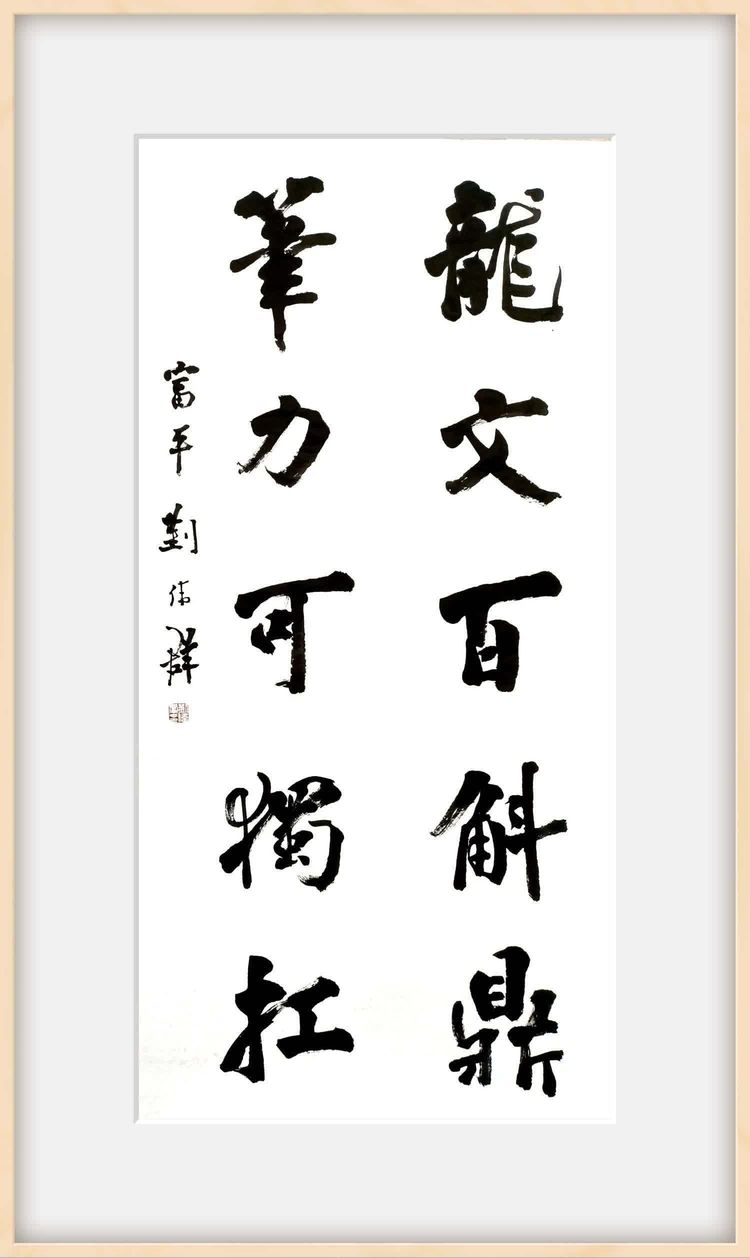 龍文百斛鼎
筆力可獨扛
富平劉